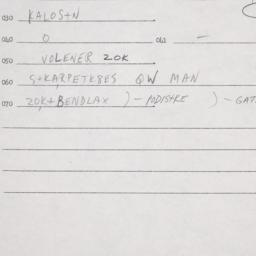 030 KALOS+N
040 0 041 —
050 VOLENER 20K
060 S+KARPETK8ES QW MAN
070 20K+BENDLAX ) - MDISTRE ) - GAT